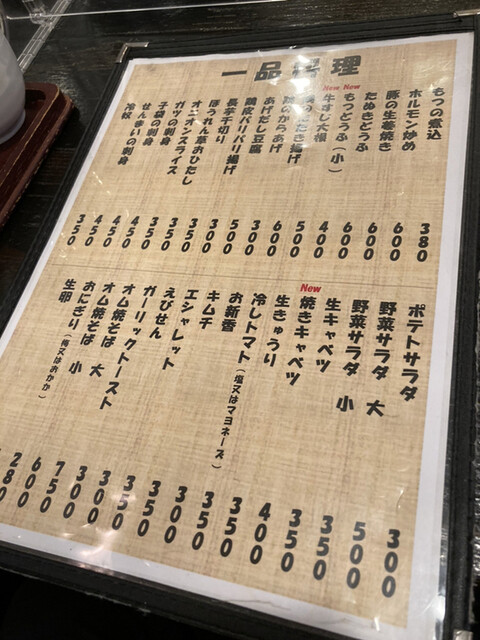 一品料理
もつの煮込
ホルモン炒め
豚の生姜焼き
たぬきとうふ
もつとうふ(小)
New
牛すじ大根
New
揚げ
のからあげ
あげだし豆腐
鶏皮パリパリ揚げ
長芋千切り
ほうれん草おひたし
オニオンスライス
ガツの刺身
子袋の刺身
せんまいの刺身
冷奴
380
600
600
600
400
500
600
300
500
300
350
350
450
450
450
350
ポテトサラダ
野菜サラダ 大
野菜サラダ 小
生キャベツ
New
焼きキャベツ
生きゅうり
冷しトマト(塩又はマヨネーズ)
お新香
キムチ
エシャレット
えびせん
ガーリックトースト
オム焼そば 大
オム焼そば 小
おにぎり(梅又はおかか)
生卵
300
500
350
350
400
350
350
300
350
350
300
300
750
600
280